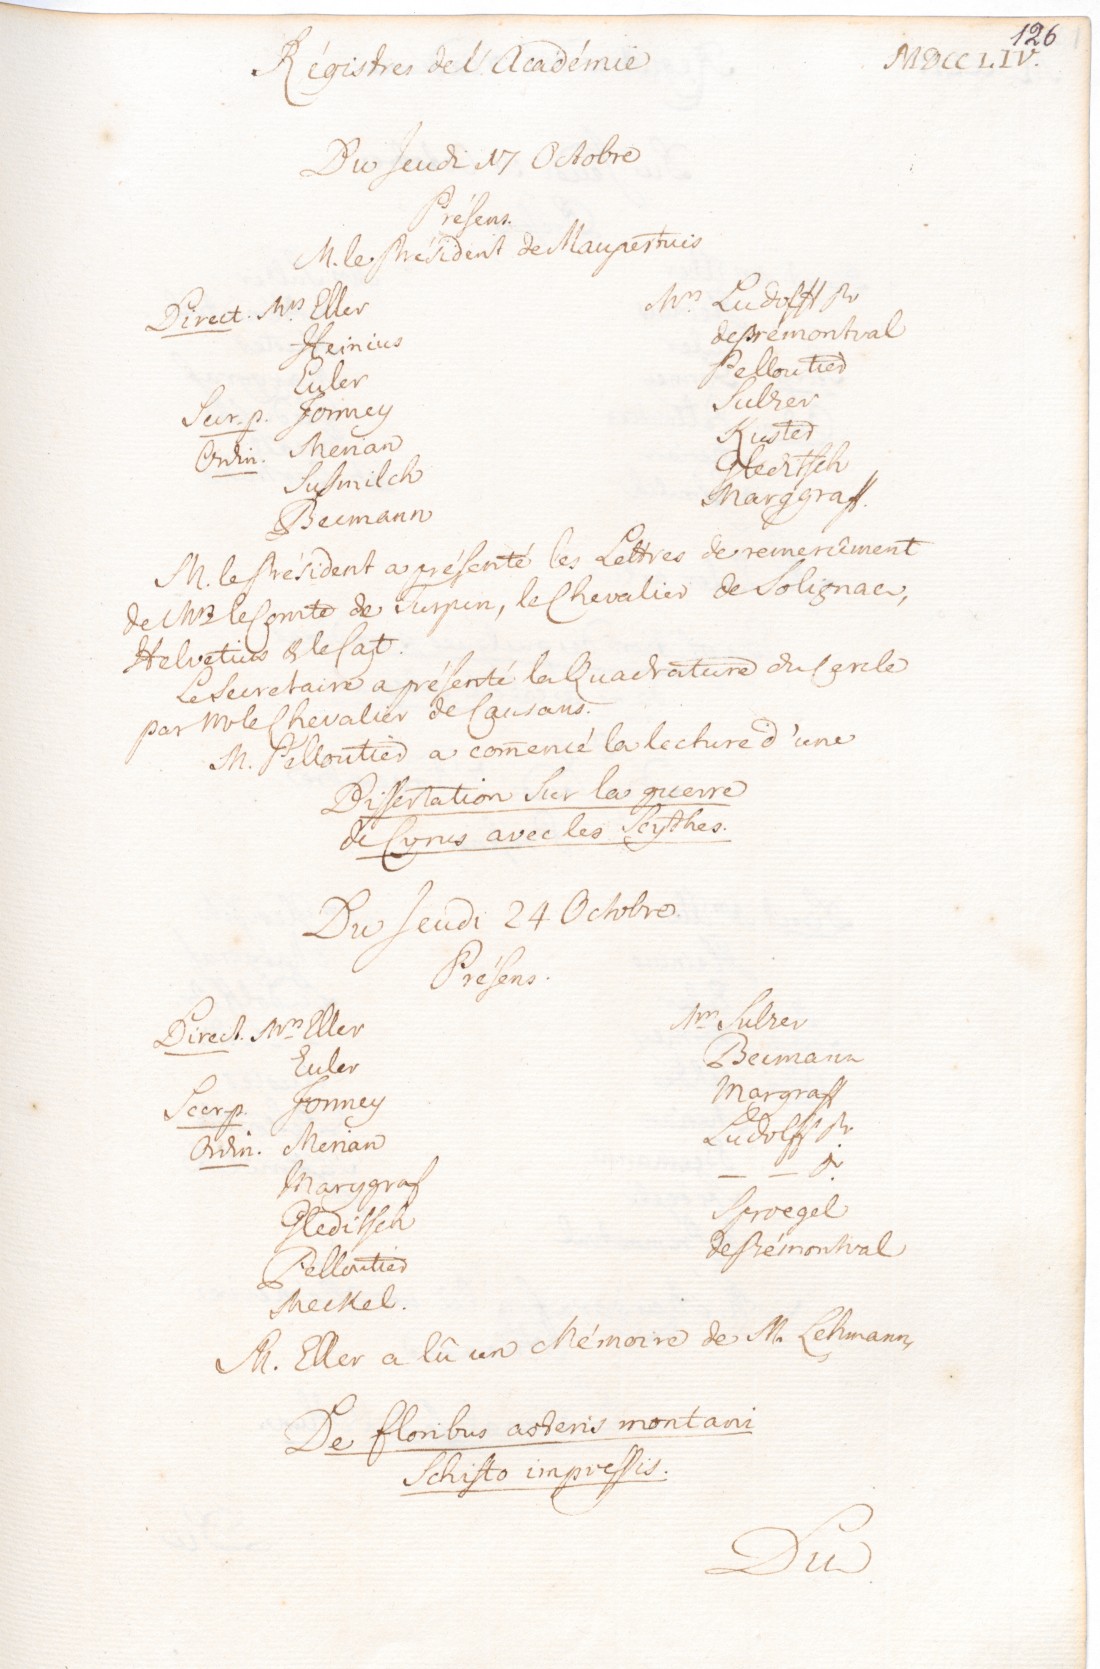 126
Régistres de l'Académie
MDCCLIV.
Du Jeudi 17 Octobre
Présens.
M. le Président de Maupertuis
Direct. Mrs. Eller
Heinius
Euler
Secr. p. Formey
Ordin. Merian
Susmilch
Becmann
Mrs. Ludolff Pr
de Prémontval
Pelloutier
Sulzer
Kuster
Gleditsch
Marggraff.
M. le Président a présenté les Lettres de remerciment
de Mrs le Comte de Turpin, le Chevalier de Solignac,
Helvetius & le Cat.
Le Secretaire a présenté la Quadrature du Cercle
par M le Chevalier de Causans.
M. Pelloutier a comencé la lecture d'une
Dissertation sur la guerre
de Cyrus avec les Scythes.
Du Jeudi 24 Octobre.
Présens.
Direct. Mrs Eller
Euler
Secr. p. Formey
Ordin. Merian
Marggraf
Gleditsch
Pelloutier
Meckel.
Mrs Sulzer
Becmann
Margraff
Ludolff Pr
— — j.
Sproegel
de Prémontval
M. Eller a lû un Mémoire de M. Lehmann,
De floribus asteris montani
Schisto impressis.
Du